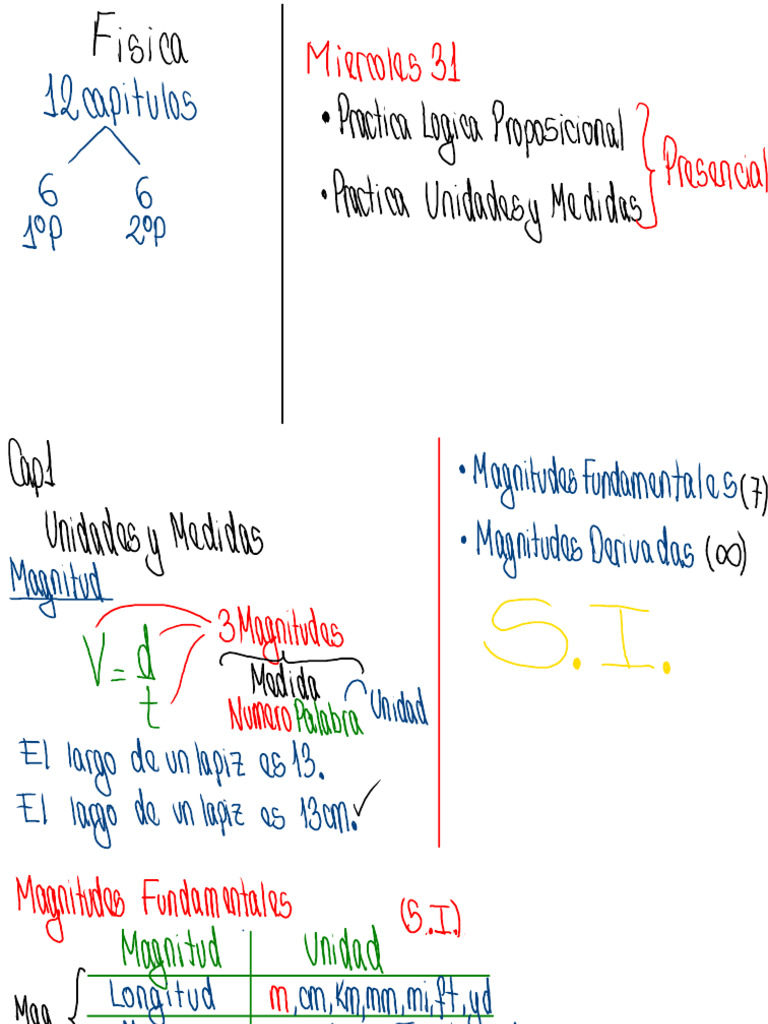 Fisica
12 capitulos
6 6
1ºP 2ºP
Miercoles 31
• Practica Logica Proposicional
• Practica Unidades y Medidas
Presencial
Cap1
Unidades y Medidas
Magnitud
V = d
t
3 Magnitudes
Medida
Numero Palabra
Unidad
El largo de un lapiz es 13.
El largo de un lapiz es 13cm. ✓
• Magnitudes Fundamentales (7)
• Magnitudes Derivadas (∞)
S.I.
Magnitudes Fundamentales (S.I.)
Magnitud Unidad
Longitud m, cm, Km, mm, mi, ft, yd